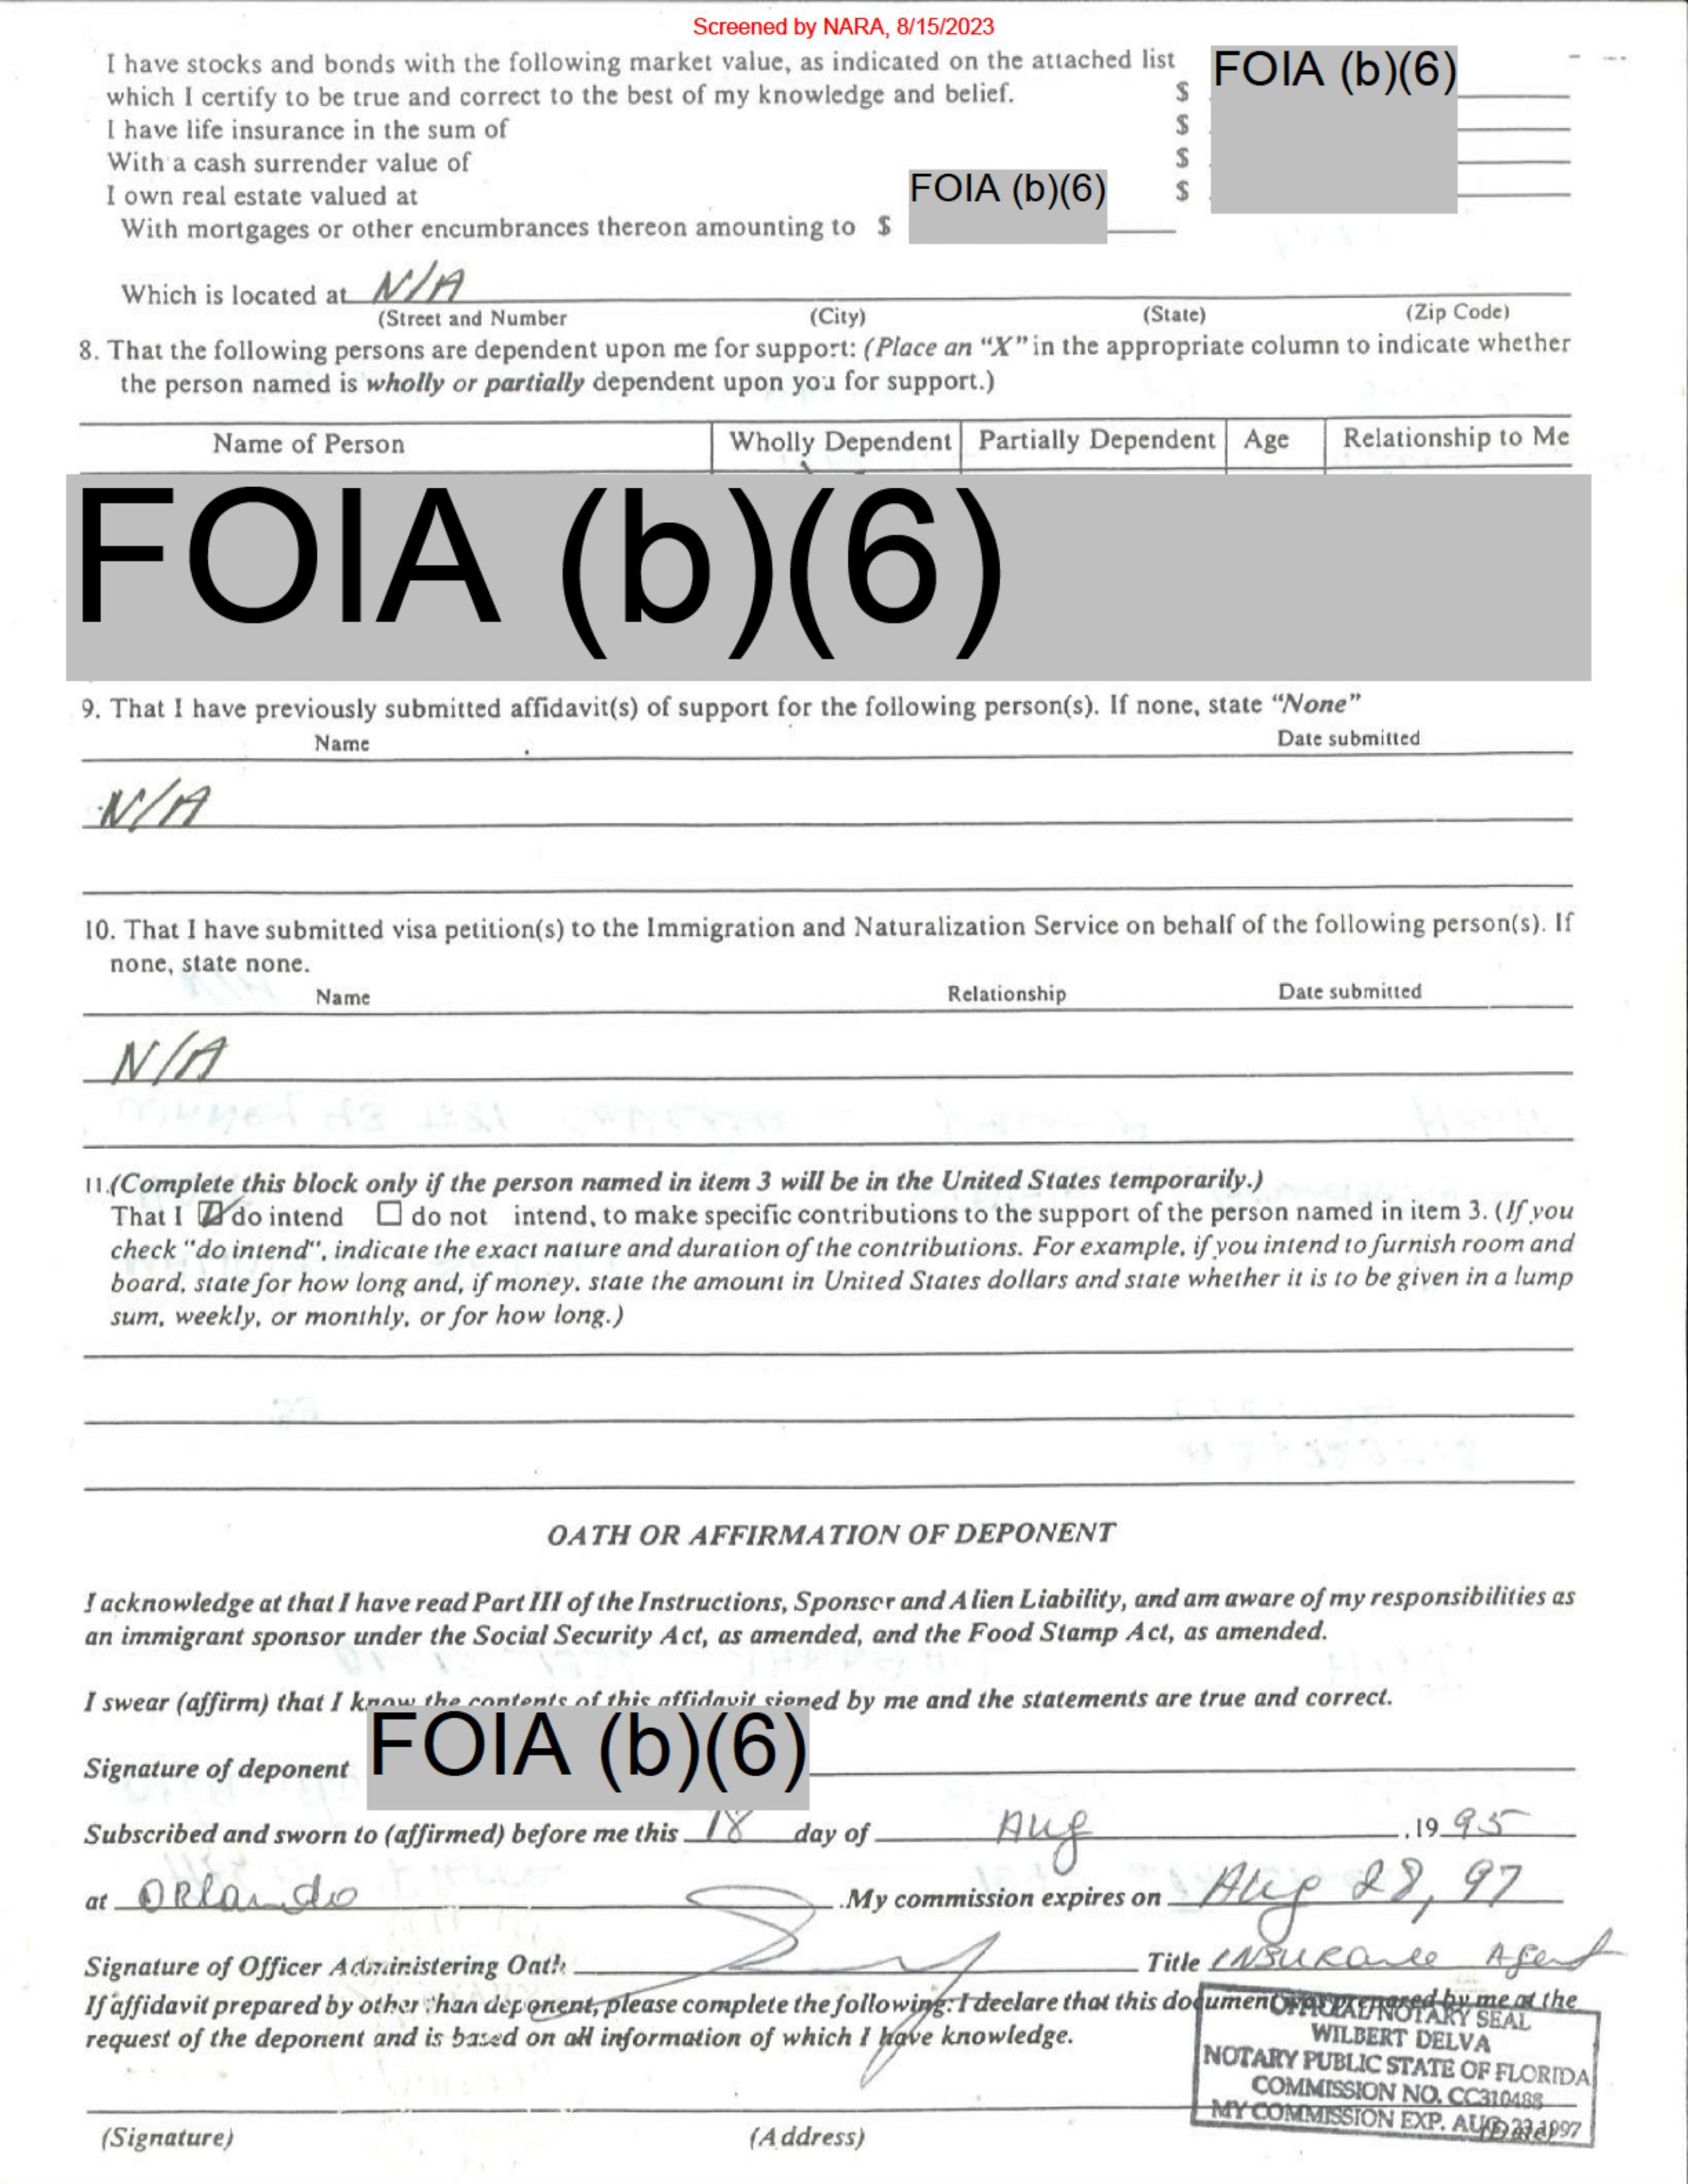 Screened by NARA, 8/15/2023
I have stocks and bonds with the following market value, as indicated on the attached list
which I certify to be true and correct to the best of my knowledge and belief. $ FOIA (b)(6)
I have life insurance in the sum of $
With a cash surrender value of $
I own real estate valued at $
With mortgages or other encumbrances thereon amounting to $ FOIA (b)(6)
Which is located at N/A
(Street and Number (City) (State) (Zip Code)
8. That the following persons are dependent upon me for support: (Place an "X" in the appropriate column to indicate whether
the person named is wholly or partially dependent upon you for support.)
Name of Person Wholly Dependent Partially Dependent Age Relationship to Me
FOIA (b)(6)
9. That I have previously submitted affidavit(s) of support for the following person(s). If none, state "None"
Name Date submitted
N/A
10. That I have submitted visa petition(s) to the Immigration and Naturalization Service on behalf of the following person(s). If
none, state none.
Name Relationship Date submitted
N/A
11.(Complete this block only if the person named in item 3 will be in the United States temporarily.)
That I ☑ do intend ☐ do not intend, to make specific contributions to the support of the person named in item 3. (If you
check "do intend", indicate the exact nature and duration of the contributions. For example, if you intend to furnish room and
board, state for how long and, if money, state the amount in United States dollars and state whether it is to be given in a lump
sum, weekly, or monthly, or for how long.)
OATH OR AFFIRMATION OF DEPONENT
I acknowledge at that I have read Part III of the Instructions, Sponsor and Alien Liability, and am aware of my responsibilities as
an immigrant sponsor under the Social Security Act, as amended, and the Food Stamp Act, as amended.
I swear (affirm) that I know the contents of this affidavit signed by me and the statements are true and correct.
Signature of deponent FOIA (b)(6)
Subscribed and sworn to (affirmed) before me this 18 day of Aug .19 95
at Orlando .My commission expires on Aug 28, 97
Signature of Officer Administering Oath Title Insurance Agent
If affidavit prepared by other than deponent, please complete the following: I declare that this document was prepared by me at the
request of the deponent and is based on all information of which I have knowledge.
OFFICIAL NOTARY SEAL
WILBERT DELVA
NOTARY PUBLIC STATE OF FLORIDA
COMMISSION NO. CC310488
MY COMMISSION EXP. AUG 1997
(Signature) (Address) (Date)